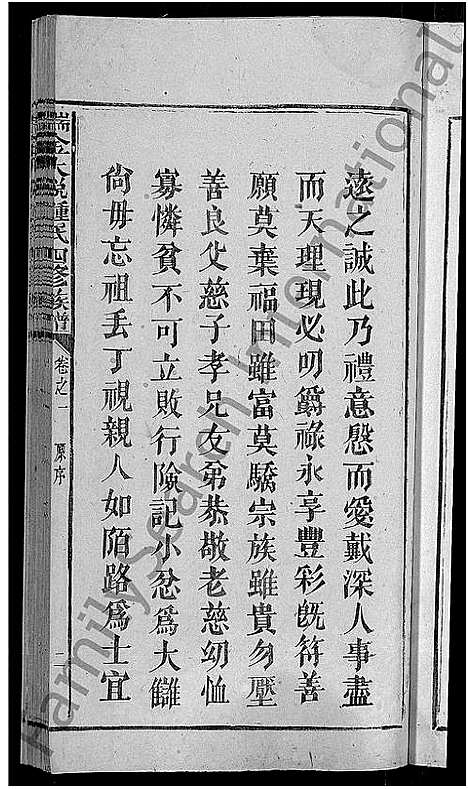 遠之誠此乃禮意慇而愛戴深人事盡
而天理現必叨爵祿永享豐彩旣符善
願莫棄福田雖富莫驕宗族雖貴勿壓
善良父慈子孝兄友弟恭敬老慈幼恤
寡憐貧不可立敗行險記小忿爲大讎
尙毋忘祖丢丁視親人如陌路爲士宜
瑞金大稅鍾氏四修族譜
卷之一
原序
二
FamilySearch International